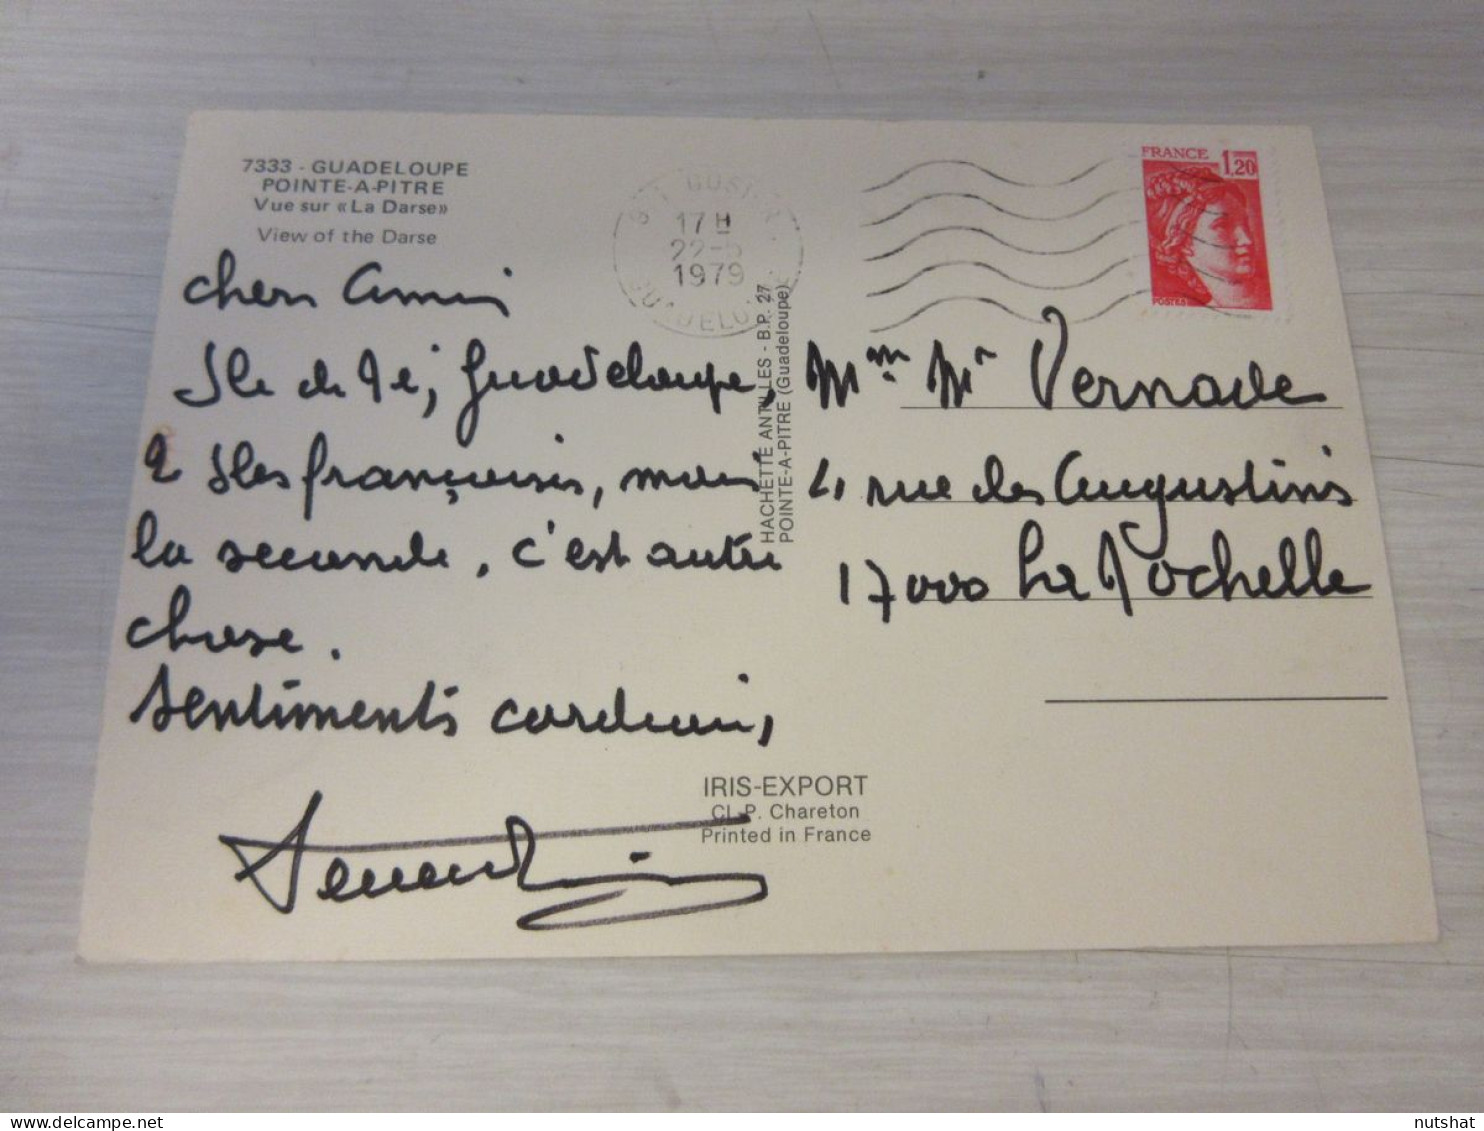 7333 - GUADELOUPE
POINTE-A-PITRE
Vue sur «La Darse»
View of the Darse
17 H
22-5
1979
FRANCE 1,20
POSTES
chers amis
Ile de Ré, Guadeloupe,
2 Iles françaises, mais
la seconde, c'est autre
chose.
Sentiments cordiaux,
HACHETTE ANTILLES - B.P. 27
POINTE-A-PITRE (Guadeloupe)
Mme Mr Vernade
4 rue des Augustins
17000 La Rochelle
IRIS-EXPORT
Cl. P. Chareton
Printed in France
delcampe.net
nutshat